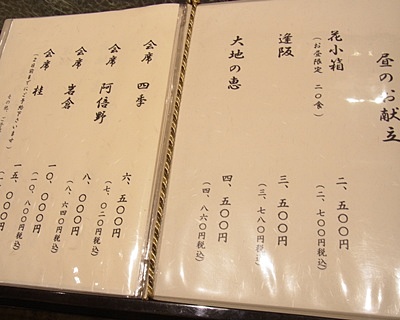 昼のお献立
花小箱
(お昼限定 二〇食)
二、五〇〇円
(二、七〇〇円税込)
逢阪
三、五〇〇円
(三、七八〇円税込)
大地の恵
四、五〇〇円
(四、八六〇円税込)
会席 四季
六、五〇〇円
(七、〇二〇円税込)
会席 阿倍野
八、〇〇〇円
(八、六四〇円税込)
会席 岩倉
一〇、〇〇〇円
(一〇、八〇〇円税込)
会席 桂
一五、〇〇〇円